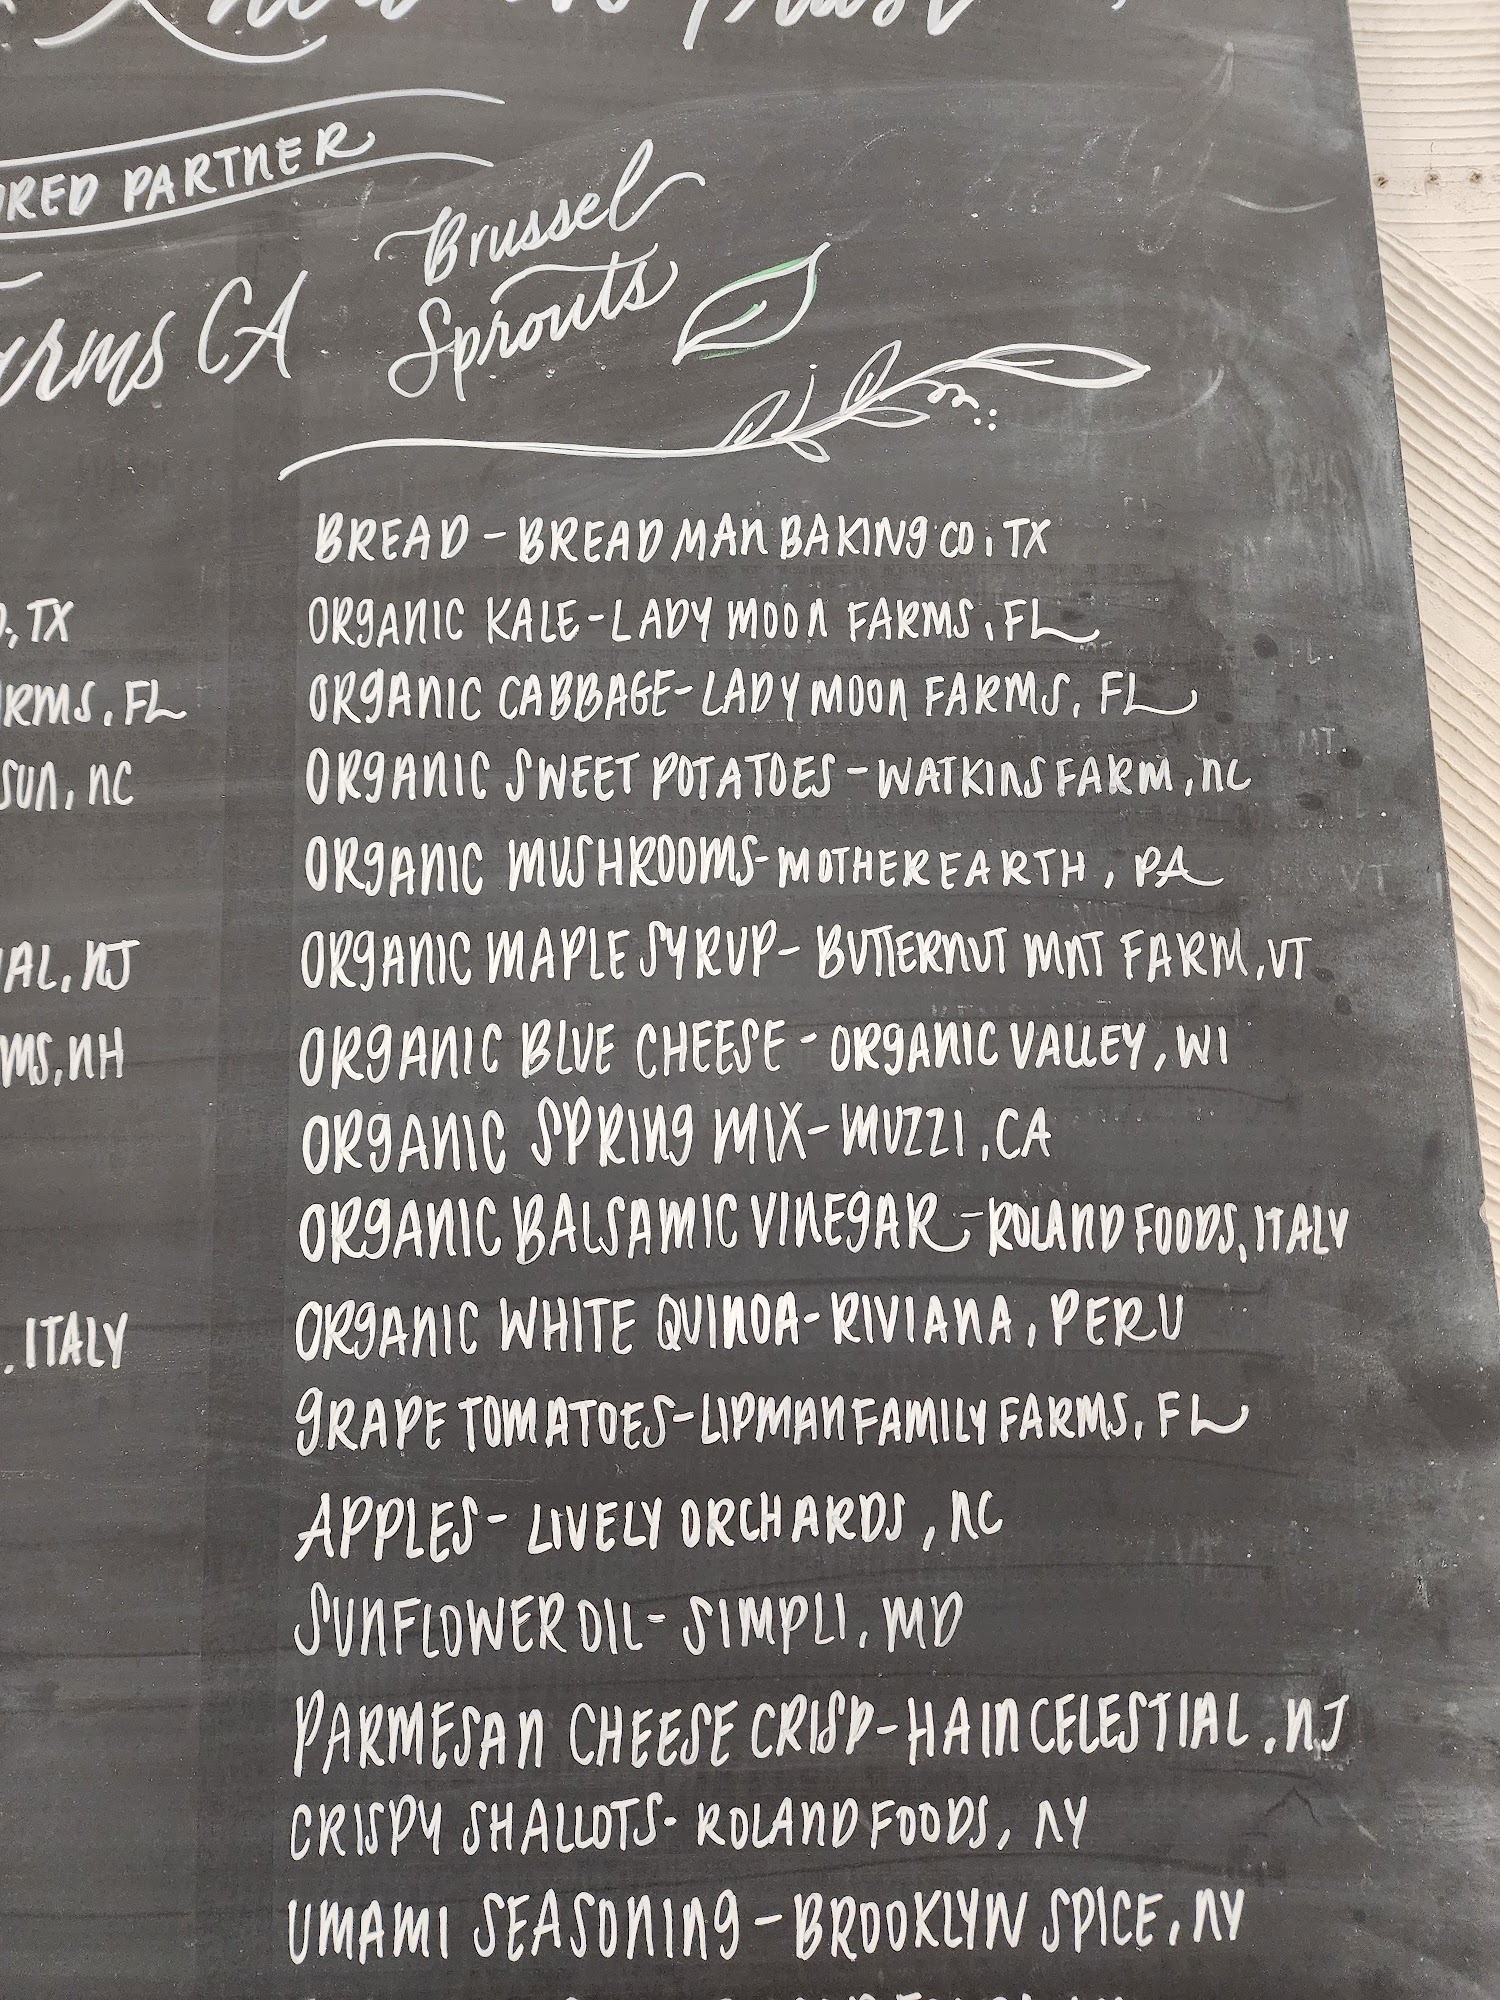 PARTNER
CA
Brussel
Sprouts
TX
FL
SUN, NC
NJ
NH
ITALY
BREAD - BREADMAN BAKING CO, TX
ORGANIC KALE - LADY MOON FARMS, FL
ORGANIC CABBAGE - LADY MOON FARMS, FL
ORGANIC SWEET POTATOES - WATKINS FARM, NC
ORGANIC MUSHROOMS - MOTHER EARTH, PA
ORGANIC MAPLE SYRUP - BUTTERNUT MNT FARM, VT
ORGANIC BLUE CHEESE - ORGANIC VALLEY, WI
ORGANIC SPRING MIX - MUZZI, CA
ORGANIC BALSAMIC VINEGAR - ROLAND FOODS, ITALY
ORGANIC WHITE QUINOA - RIVIANA, PERU
GRAPE TOMATOES - LIPMAN FAMILY FARMS, FL
APPLES - LIVELY ORCHARDS, NC
SUNFLOWER OIL - SIMPLI, MD
PARMESAN CHEESE CRISP - HAIN CELESTIAL, NJ
CRISPY SHALLOTS - ROLAND FOODS, NY
UMAMI SEASONING - BROOKLYN SPICE, NY